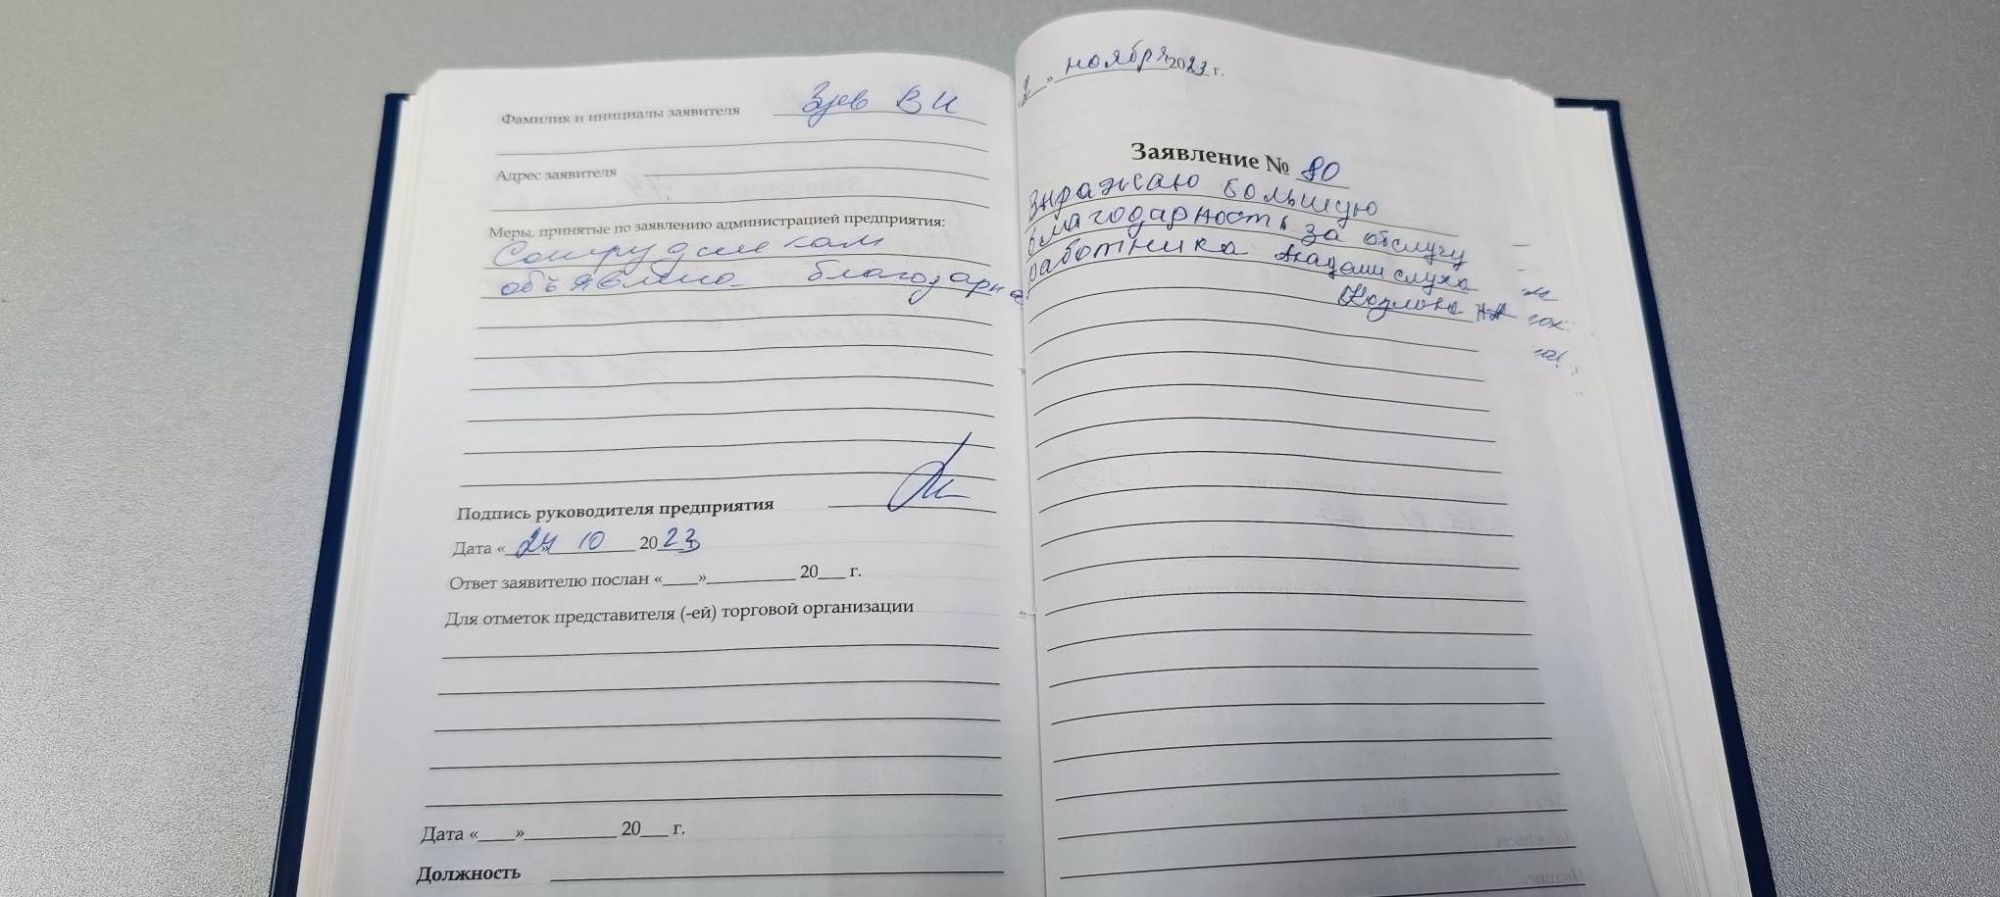 Фамилия и инициалы заявителя Зуев В И
Адрес заявителя
Меры, принятые по заявлению администрацией предприятия:
Сотрудникам
объявлена благодарн
Подпись руководителя предприятия
Дата «24 10 2023
Ответ заявителю послан «___»__________ 20___ г.
Для отметок представителя (-ей) торговой организации
Дата «___»__________ 20___ г.
Должность
2 » ноября 2023 г.
Заявление № 80
Выражаю большую
благодарность за обслугу
работника Академи слуха